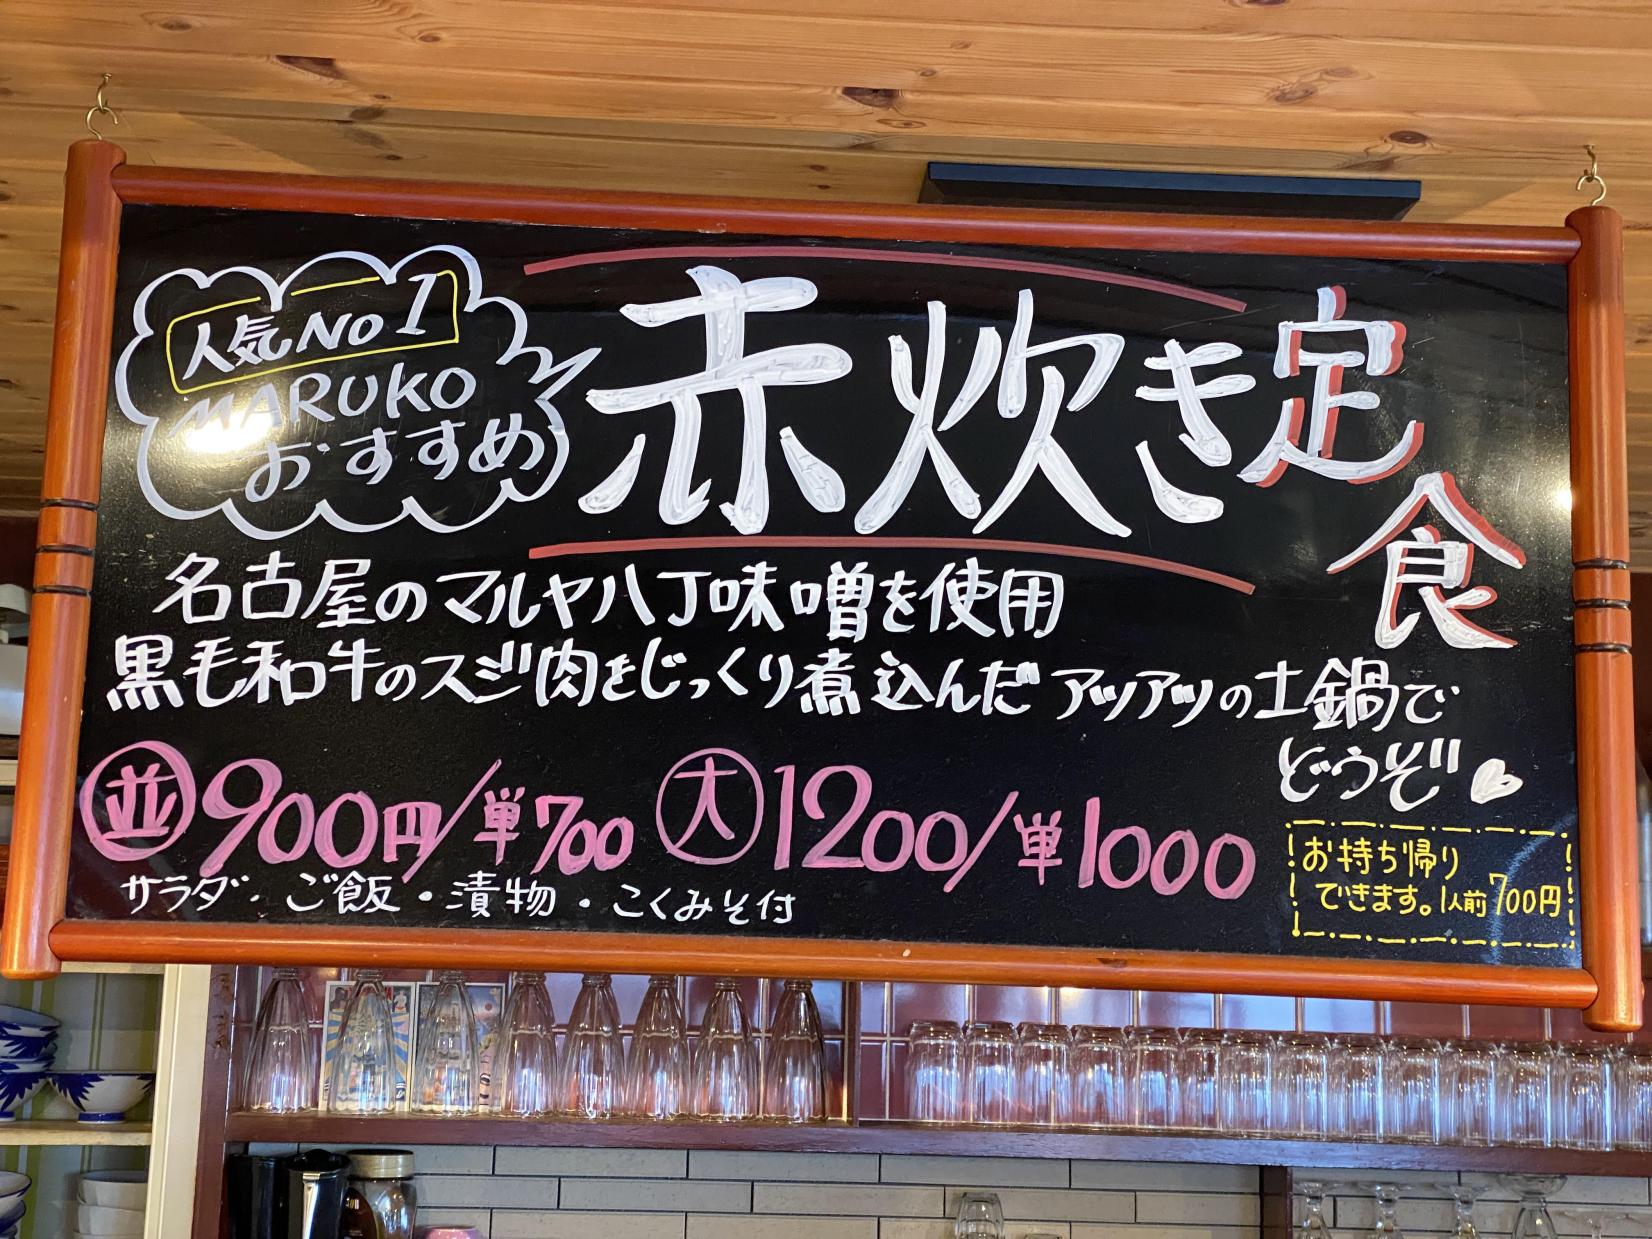 人気No1
MARUKO
おすすめ
赤炊き定食
名古屋のマルヤ八丁味噌を使用
黒毛和牛のスジ肉をじっくり煮込んだアツアツの土鍋で
どうぞ♥
並900円/単700 大1200/単1000
サラダ・ご飯・漬物・こくみそ付
お持ち帰り
できます。1人前700円